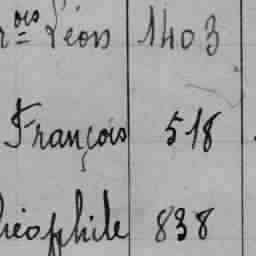 ois Léon 1403
François 518
héophile 838